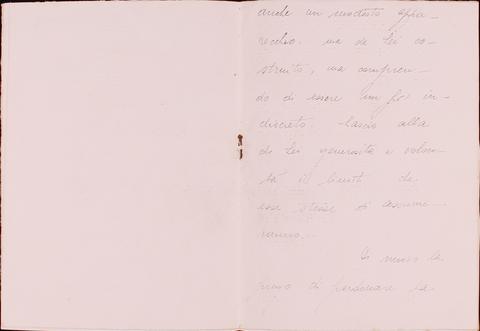 anche un modesto appa-
recchio. ma da Lei co-
struito, ma compren-
do di essere un po' in-
discreto. Lascio alla
di Lei generosità e volon-
tà il limite che
esse stesse si assume-
ranno.-
di